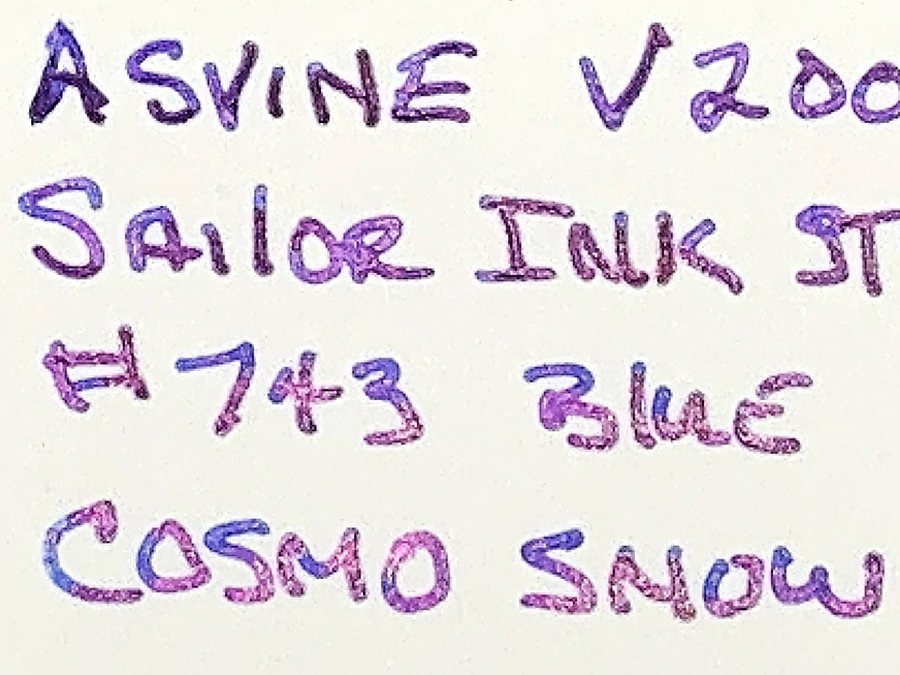 ASVINE V200
SAilOR INK ST
#743 BluE
COSMO SNOW